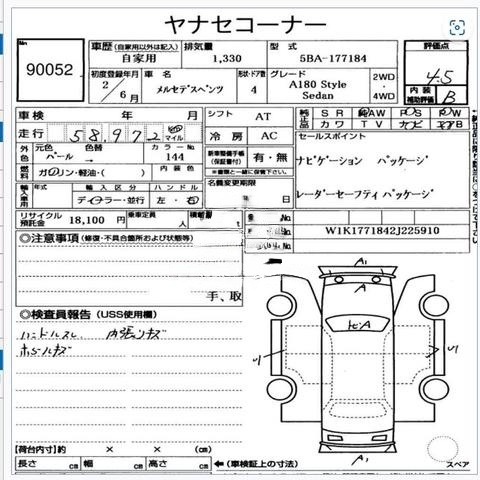 ヤナセコーナー
No
90052
車歴 (自家用以外は記入) 排気量 型式
自家用 1,330 5BA-177184
初度登録年月 車名 形状・ドア数 グレード
2/6月 メルセデスベンツ 4 A180 Style Sedan 2WD・4WD
評価点
4.5
内装補助評価 B
車検 年 月
走行 58,972 マイル
シフト AT
冷房 AC
純正品 SR AW PS PW
カワ TV ナビ
セールスポイント
ナビゲーション パッケージ
レーダーセーフティ パッケージ
外色 元色 色替 カラーNo
パール→ 144
燃料 ガソリン・軽油・( ) 内装色
新車整備手帳(保証書付) 有・無
※書類と一緒に保管下さい。
輸入車用 年式 輸入区分 ハンドル
ディーラー・並行 左・右
名義変更期限
月 日
リサイクル預託金 18,100 円 乗車定員 人 積載量 t
No.
W1K1771842J225910
◎注意事項 (修復・不具合箇所および状態等)
手、取
◎検査員報告 (USS使用欄)
ハンドルスレ 内張りキズ
ホイールキズ
A1
A
X・A
A1
スペア
【荷台内寸】約 × × (cm)
長さ cm 幅 cm 高さ cm
←(車検証上の寸法)